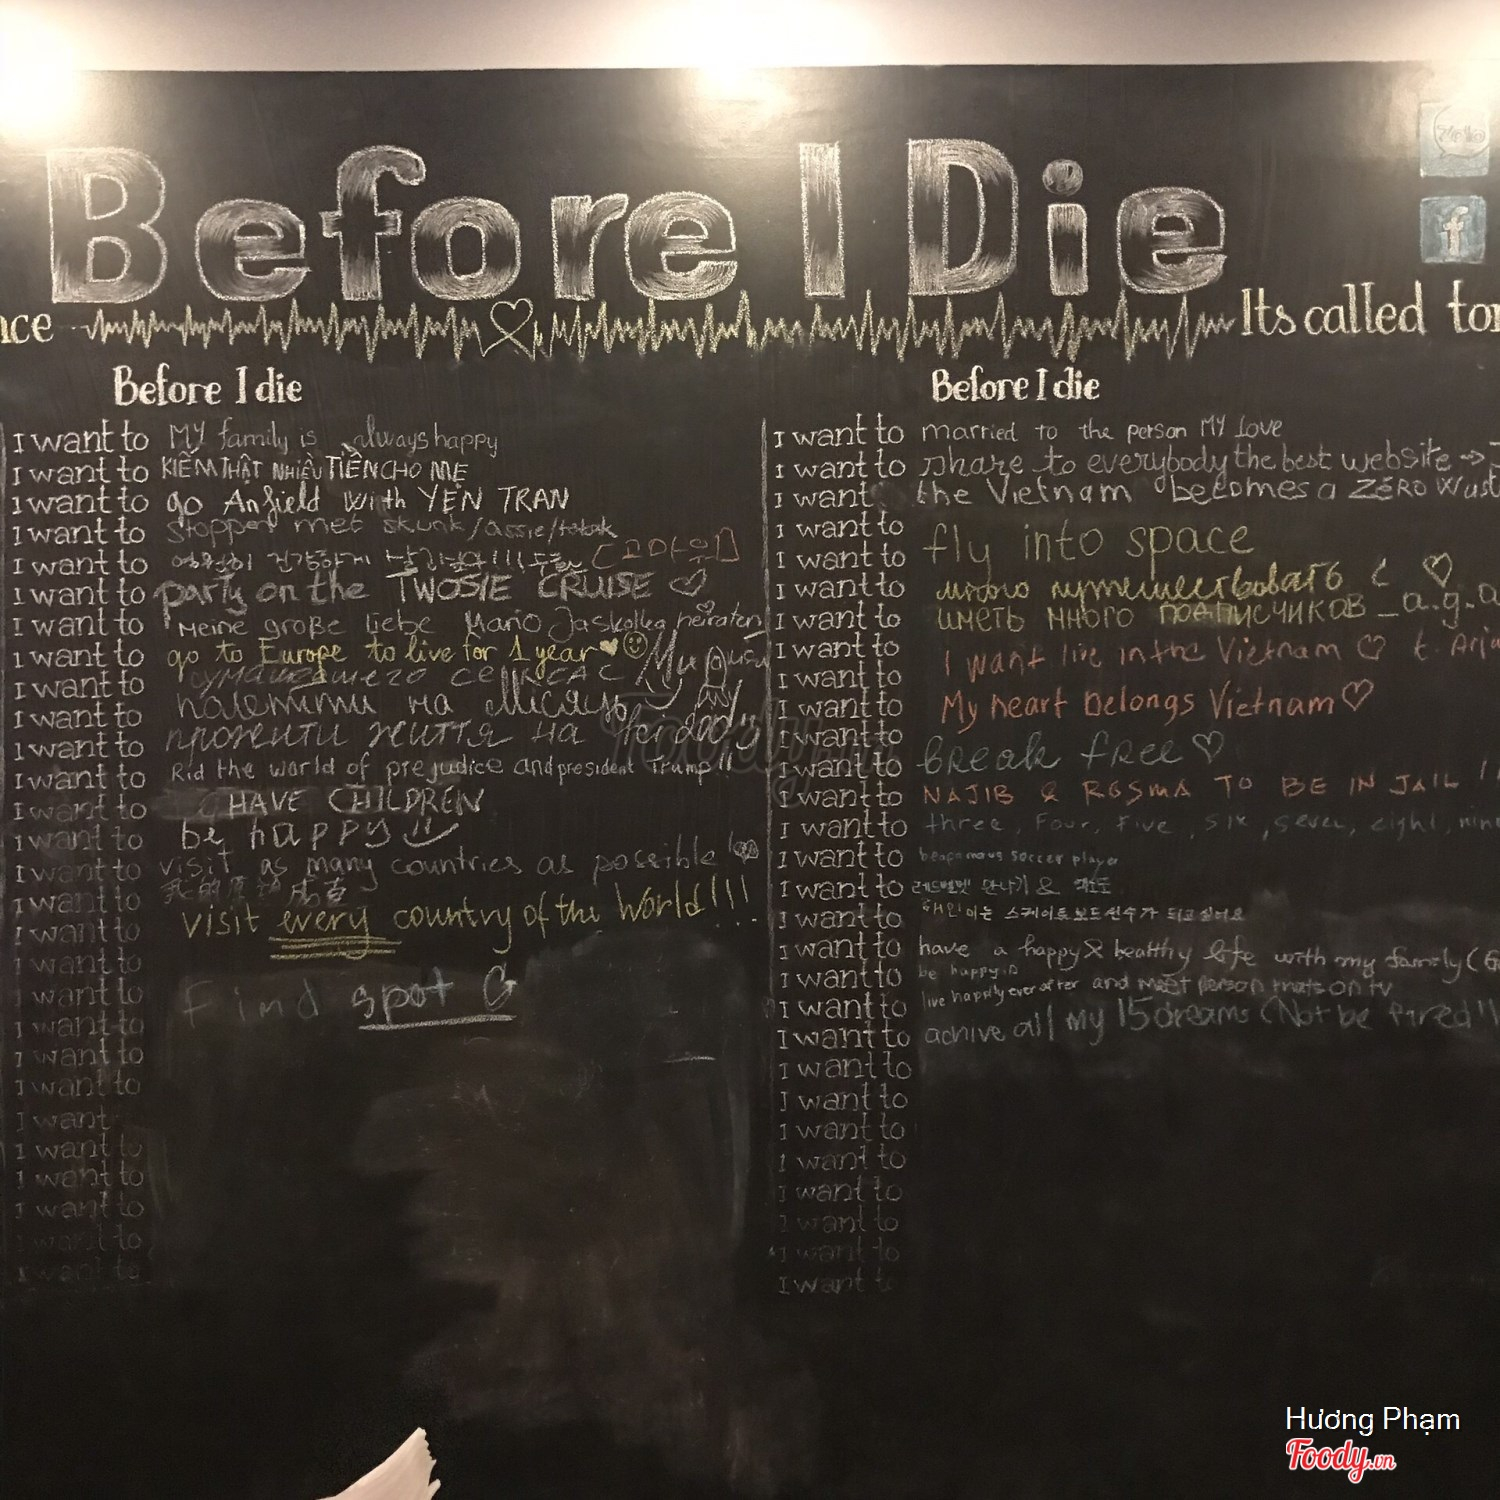 Before I Die
zalo
f
nce
Its called tor
Before I die
I want to MY family is always happy
I want to KIẾM THẬT NHIỀU TIỀN CHO MẸ
I want to go Anfield with YEN TRAN
I want to stoppen met skunk/assie/tabak
I want to 건강하게
I want to party on the TWOSIE CRUISE
I want to Meine große liebe Mario Jaskolka heiraten
I want to go to Europe to live for 1 year
I want to сумасшедшего
I want to на Місяць
I want to прожити життя на
I want to Rid the world of prejudice and president Trump!!
I want to HAVE CHILDREN
I want to be happy
I want to visit as many countries as possible
I want to 我的
I want to visit every country of the World!!!
I want to
I want to find spot
I want to
I want to
I want to
I want
I want to
I want to
I want to
I want to
I want to
Before I die
I want to married to the person MY love
I want to share to everybody the best website →
I want the Vietnam becomes a ZERO Wast
I want to fly into space
I want to
I want to много путешествовать
I want to иметь много подписчиков _ a.g.a
I want to I want live in the Vietnam t. Arja
I want to
I want to My heart belongs Vietnam
I want to
I want to break free
I want to NAJIB & ROSMA TO BE IN JAIL !
I want to three, Four, Five, six, seven, eight, nin
I want to soccer player
I want to 레드벨벳 만나기 &
I want to 스케이트보드선수가 되고싶어요
I want to have a happy & healthy life with my family (
I want to be happy
I want to live happily ever after and meet person thats on tv
I want to achive all my 15 dreams (Not be
I want to
I want to
I want to
I want to
I want to
I want to
I want to
I want to
Hương Phạm
Foody.vn